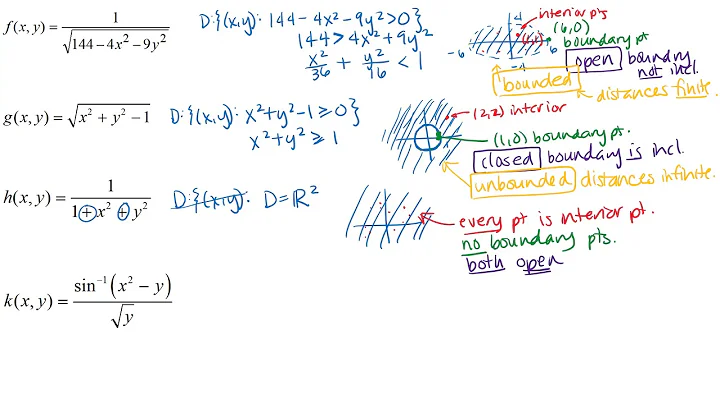 f(x, y) = 1 / √(144 − 4x² − 9y²)
D: {(x,y): 144 − 4x² − 9y² > 0}
144 > 4x² + 9y²
x²/36 + y²/16 < 1
4
interior pts
(6,0)
boundary pt
-6
6
-4
open boundary
not incl.
bounded
distances finite.
g(x, y) = √(x² + y² − 1)
D: {(x,y): x² + y² − 1 ≥ 0}
x² + y² ≥ 1
(2,2) interior
(1,0) boundary pt.
closed boundary is incl.
unbounded distances infinite.
h(x, y) = 1 / (1 + x² + y²)
D: {(x,y): D = ℝ²
every pt is interior pt.
no boundary pts.
both open
k(x, y) = sin⁻¹(x² − y) / √y